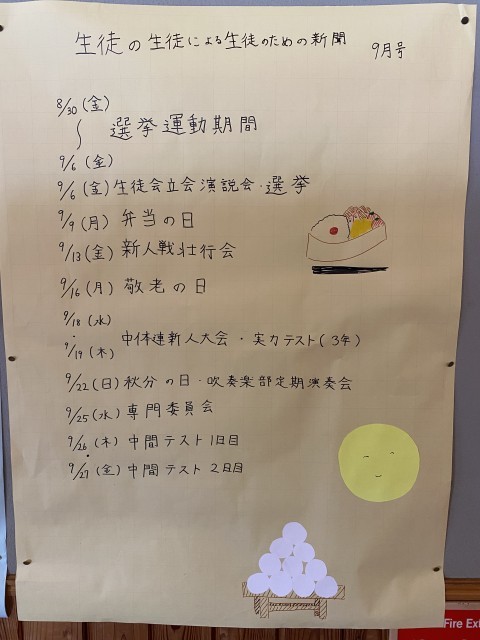 生徒の生徒による生徒のための新聞 9月号
8/30(金)
〜 選挙運動期間
9/6(金)
9/6(金)生徒会立会演説会・選挙
9/9(月)弁当の日
9/13(金)新人戦壮行会
9/16(月)敬老の日
9/18(水)
・ 中体連新人大会・実力テスト(3年)
9/19(木)
9/22(日)秋分の日・吹奏楽部定期演奏会
9/25(水)専門委員会
9/26(木)中間テスト1日目
・
9/27(金)中間テスト2日目
Fire Ex